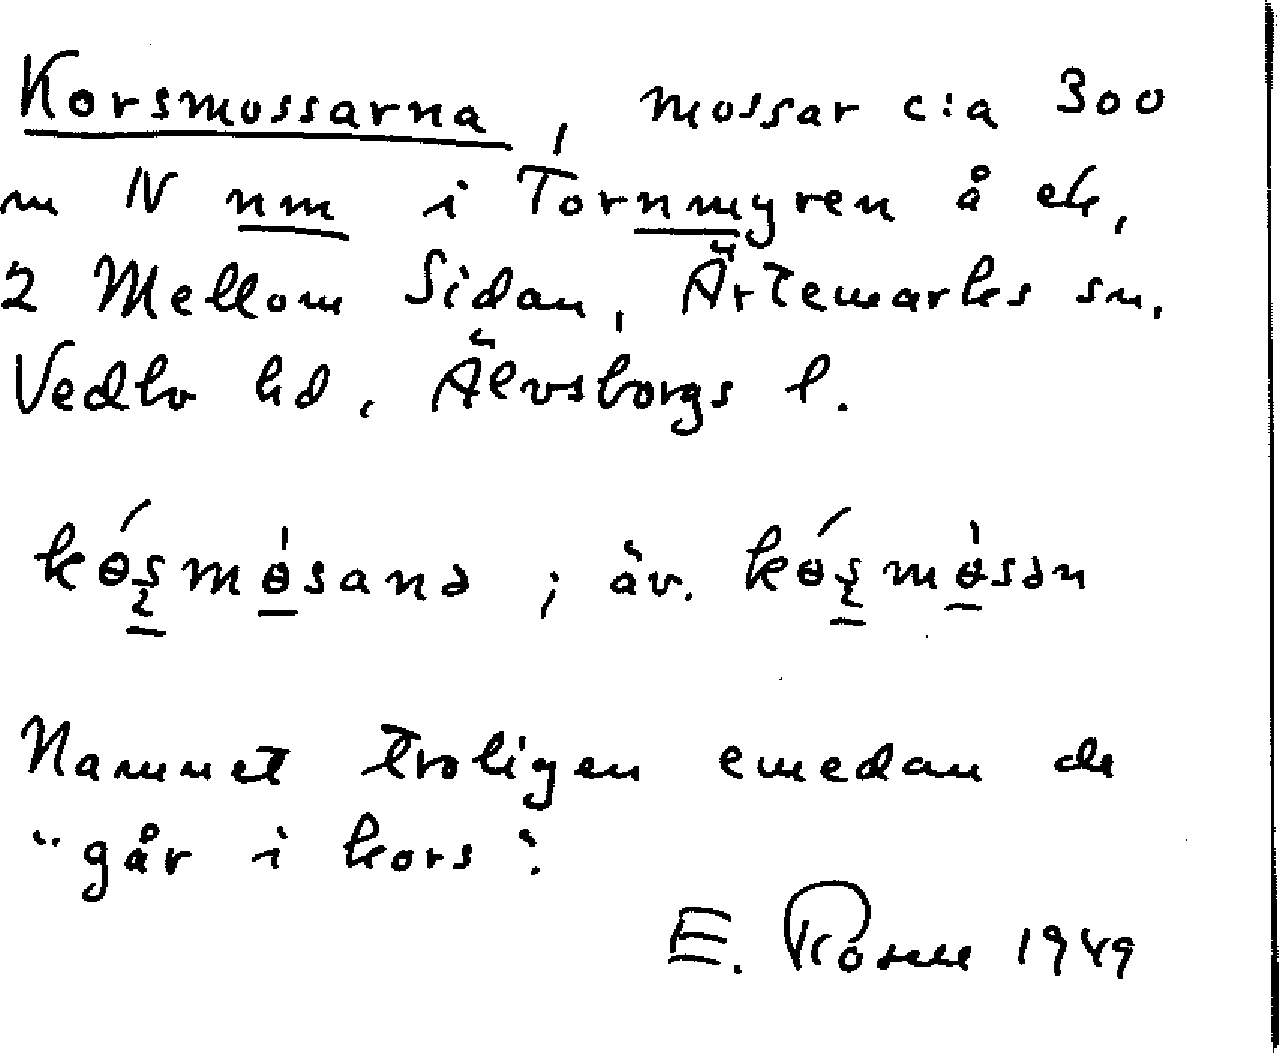 Korsmossarna, mossar c:a 300
m N nm i Tornmyren å ek,
2 Mellom Sidan, Ärtemarks sn.
Vedbo hd, Älvsborgs l.
kɵ́s̨mɵ̀sanə ; äv. kɵ́s̨mɵ̀sən
Namnet troligen emedan de
"går i kors".
E. 1949